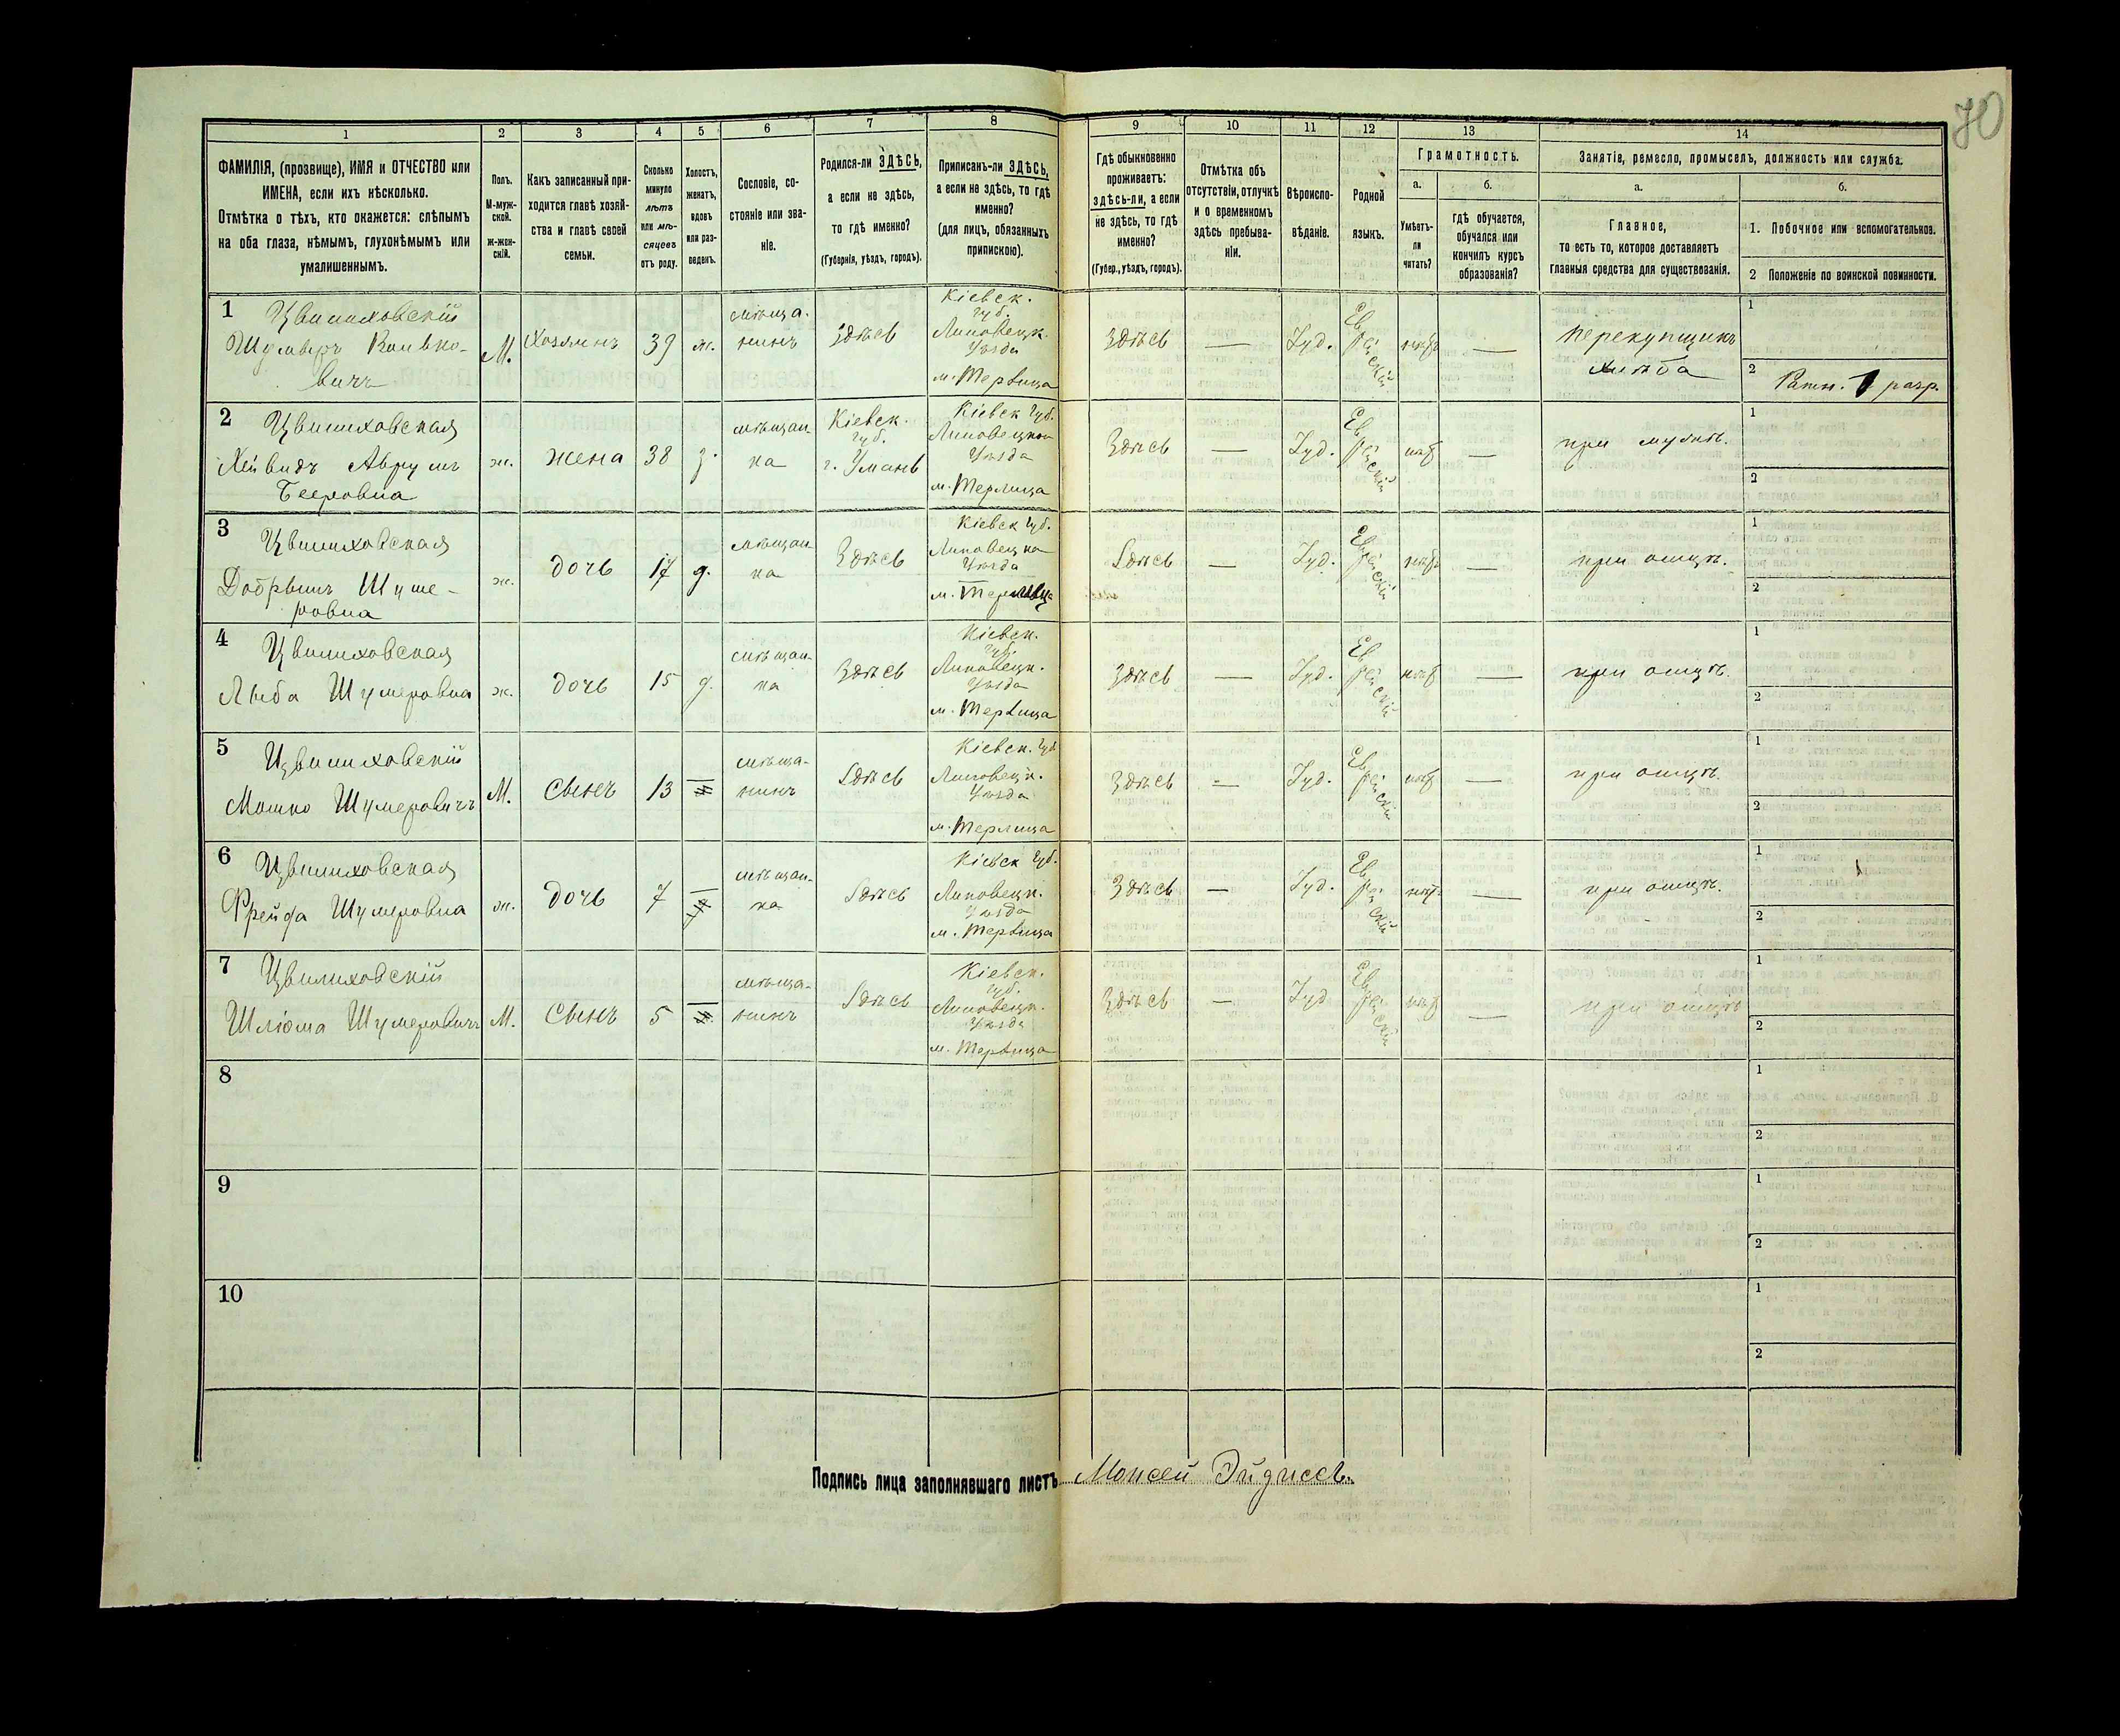 70
1 2 3 4 5 6 7 8 9 10 11 12 13 14
ФАМИЛІЯ, (прозвище), ИМЯ и ОТЧЕСТВО или
ИМЕНА, если ихъ нѣсколько.
Отмѣтка о тѣхъ, кто окажется: слѣпымъ
на оба глаза, нѣмымъ, глухонѣмымъ или
умалишеннымъ.
Полъ.
М-муж-
ской.
ж-жен-
скій.
Какъ записанный при-
ходится главѣ хозяй-
ства и главѣ своей
семьи.
Сколько
минуло
лѣтъ
или мѣ-
сяцевъ
отъ роду.
Холостъ,
женатъ,
вдовъ
или раз-
веденъ.
Сословіе, со-
стояніе или зва-
ніе.
Родился-ли ЗДѢСЬ,
а если не здѣсь,
то гдѣ именно?
(Губернія, уѣздъ, городъ).
Приписанъ-ли ЗДѢСЬ,
а если не здѣсь, то гдѣ
именно?
(для лицъ, обязанныхъ
припискою).
Гдѣ обыкновенно
проживаетъ:
здѣсь-ли, а если
не здѣсь, то гдѣ
именно?
(Губер., уѣздъ, городъ).
Отмѣтка объ
отсутствіи, отлучкѣ
и о временномъ
здѣсь пребыва-
ніи.
Вѣроиспо-
вѣданіе.
Родной
языкъ.
Грамотность.
а.
Умѣетъ-
ли
читать?
б.
гдѣ обучается,
обучался или
кончилъ курсъ
образованія?
Занятіе, ремесло, промыселъ, должность или служба.
а.
Главное,
то есть то, которое доставляетъ
главныя средства для существованія.
б.
1. Побочное или вспомогательное.
2 Положеніе по воинской повинности.
1
Цвилиховскій
Шумеръ
вичъ
М.
Хозяинъ
39
ж.
мѣща-
нинъ
Здѣсь
Кіевск.
губ.
Липовецк.
Уѣзда
м. Терлица
Здѣсь
—
Іуд.
Еврейскій
нѣтъ
—
перекупщикъ
хлѣба
1
2 Ратн. 1 разр.
2
Цвилиховская
Хейвидъ Аврумъ
Бееровна
ж.
жена
38
з.
мѣщан-
ка
Кіевск.
губ.
г. Умань
Кіевск губ.
Липовецкаго
Уѣзда
м. Терлица
Здѣсь
—
Іуд.
Еврейскій
нѣтъ
—
при мужѣ.
1
2
3
Цвилиховская
Добрышъ Шуме-
ровна
ж.
дочь
17
д.
мѣщан-
ка
Здѣсь
Кіевск губ.
Липовецка
Уѣзда
м. Терлица
Здѣсь
—
Іуд.
Еврейскій
нѣтъ
—
при отцѣ.
1
2
4
Цвилиховская
Лыба Шумеровна
ж.
дочь
15
д.
мѣщан-
ка
Здѣсь
Кіевск.
губ.
Липовецк.
Уѣзда
м. Терлица
Здѣсь
—
Іуд.
Еврейскій
нѣтъ
—
при отцѣ.
1
2
5
Цвилиховскій
Мошко Шумеровичъ
М.
Сынъ
13
—
мѣща-
нинъ
Здѣсь
Кіевск. губ
Липовецк.
Уѣзда
м. Терлица
Здѣсь
-
Іуд.
Еврейскій
нѣтъ
—
при отцѣ.
1
2
6
Цвилиховская
Фрейда Шумеровна
ж.
дочь
7
—
мѣщан-
ка
Здѣсь
Кіевск губ.
Липовецк.
Уѣзда
м. Терлица
Здѣсь
—
Іуд.
Еврейскій
нѣтъ
—
при отцѣ.
1
2
7
Цвилиховскій
Шліома Шумеровичъ
М.
Сынъ
5
—
мѣща-
нинъ
Здѣсь
Кіевск.
губ.
Липовецк.
Уѣзда
м. Терлица
Здѣсь
—
Іуд
Еврейскій
нѣтъ
—
при отцѣ
1
2
8
1
2
9
1
2
10
1
2
Подпись лица заполнявшаго листъ Моисей